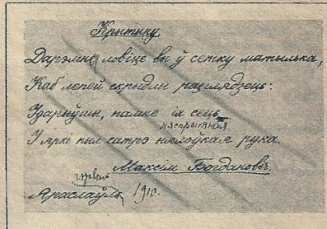 Крытыку
Дарэмне ловіце вы ў сетку матылька,
Каб лепей скрыдлы разглядзець:
Ўдарыўшы, памне іх сець
няспрытная
І яркі пыл сатрэ нялоўкая рука
Максім Богдановъ.
чэрвень
Яраслаўль, 1910.